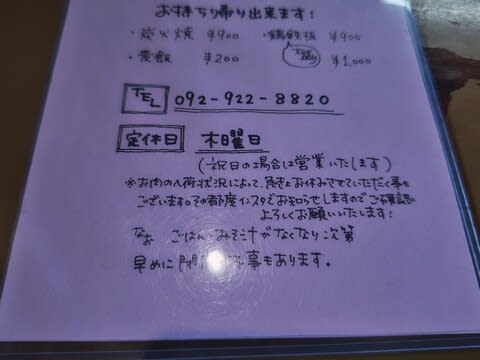 お持ち帰り出来ます！
・炭火焼 ¥900 ・鶏鉄板 ¥900
・麦飯 ¥200 ¥1,000
TEL 092-922-8820
定休日 木曜日
(祝日の場合は営業いたします)
※お肉の入荷状況によって、急きょお休みさせていただく事も
ございますのでその都度インスタでお知らせしますのでご確認
よろしくお願いいたします！
なお ごはん・みそ汁がなくなり次第
早めに閉 事もあります。